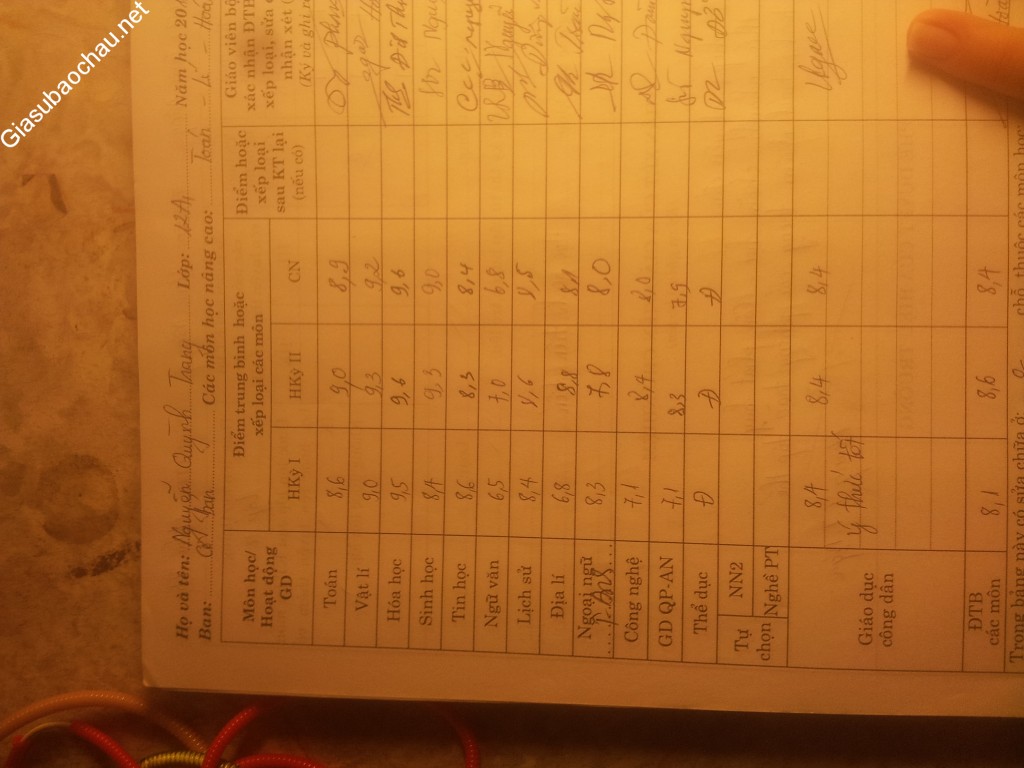 Giasubaochau.net
Họ và tên: Nguyễn Quỳnh Trang Lớp: 12A1 Năm học 20
Ban: Cơ bản Các môn học nâng cao: Toán - Lí - Hoá
Môn học/ Hoạt động GD
Điểm trung bình hoặc xếp loại các môn
HKỳ I HKỳ II CN
Điểm hoặc xếp loại sau KT lại (nếu có)
Giáo viên bộ
xác nhận ĐTB
xếp loại, sửa
nhận xét (
(Ký và ghi
Toán 8,6 9,0 8,9
Vật lí 9,0 9,3 9,2
Hóa học 9,5 9,6 9,6
Sinh học 8,4 9,3 9,0
Tin học 8,6 8,3 8,4
Ngữ văn 6,5 7,0 6,8
Lịch sử 8,4 8,6 8,5
Địa lí 6,8 8,8 8,1
Ngoại ngữ 8,3 7,8 8,0
T.Anh
Công nghệ 7,1 8,4 8,0
GD QP-AN 7,1 8,3 7,9
Thể dục Đ Đ Đ
Tự chọn
NN2
Nghề PT
Giáo dục công dân 8,4 8,4 8,4
Ý thức tốt
Ngọc
ĐTB các môn 8,1 8,6 8,4
Trong bảng này có sửa chữa ở: chỗ thuộc các môn học